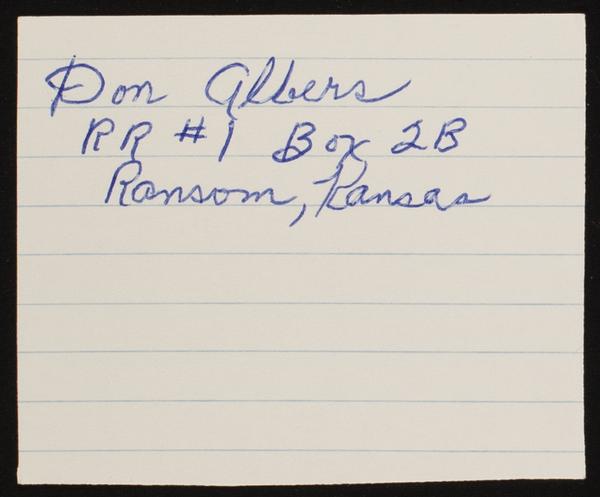 Don Albers
RR #1 Box 2B
Ransom, Kansas